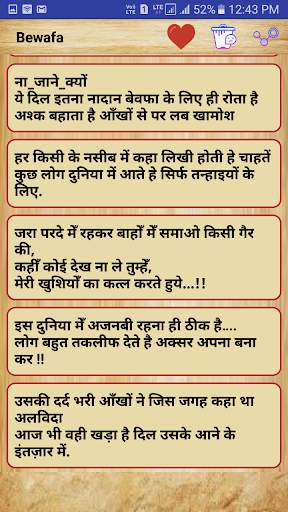 52% 12:43 PM
Bewafa
ना_जाने_क्यों
ये दिल इतना नादान बेवफा के लिए ही रोता है
अश्क बहाता है आँखों से पर लब खामोश
हर किसी के नसीब में कहा लिखी होती हे चाहतें
कुछ लोग दुनिया में आते हे सिर्फ तन्हाइयों के
लिए.
जरा परदे मेँ रहकर बाहोँ मेँ समाओ किसी गैर
की,
कहीँ कोई देख ना ले तुम्हेँ,
मेरी खुशियोँ का कत्ल करते हुये...!!
इस दुनिया मेँ अजनबी रहना ही ठीक है....
लोग बहुत तकलीफ देते है अक्सर अपना बना
कर !!
उसकी दर्द भरी आँखों ने जिस जगह कहा था
अलविदा
आज भी वही खड़ा है दिल उसके आने के
इंतज़ार में.